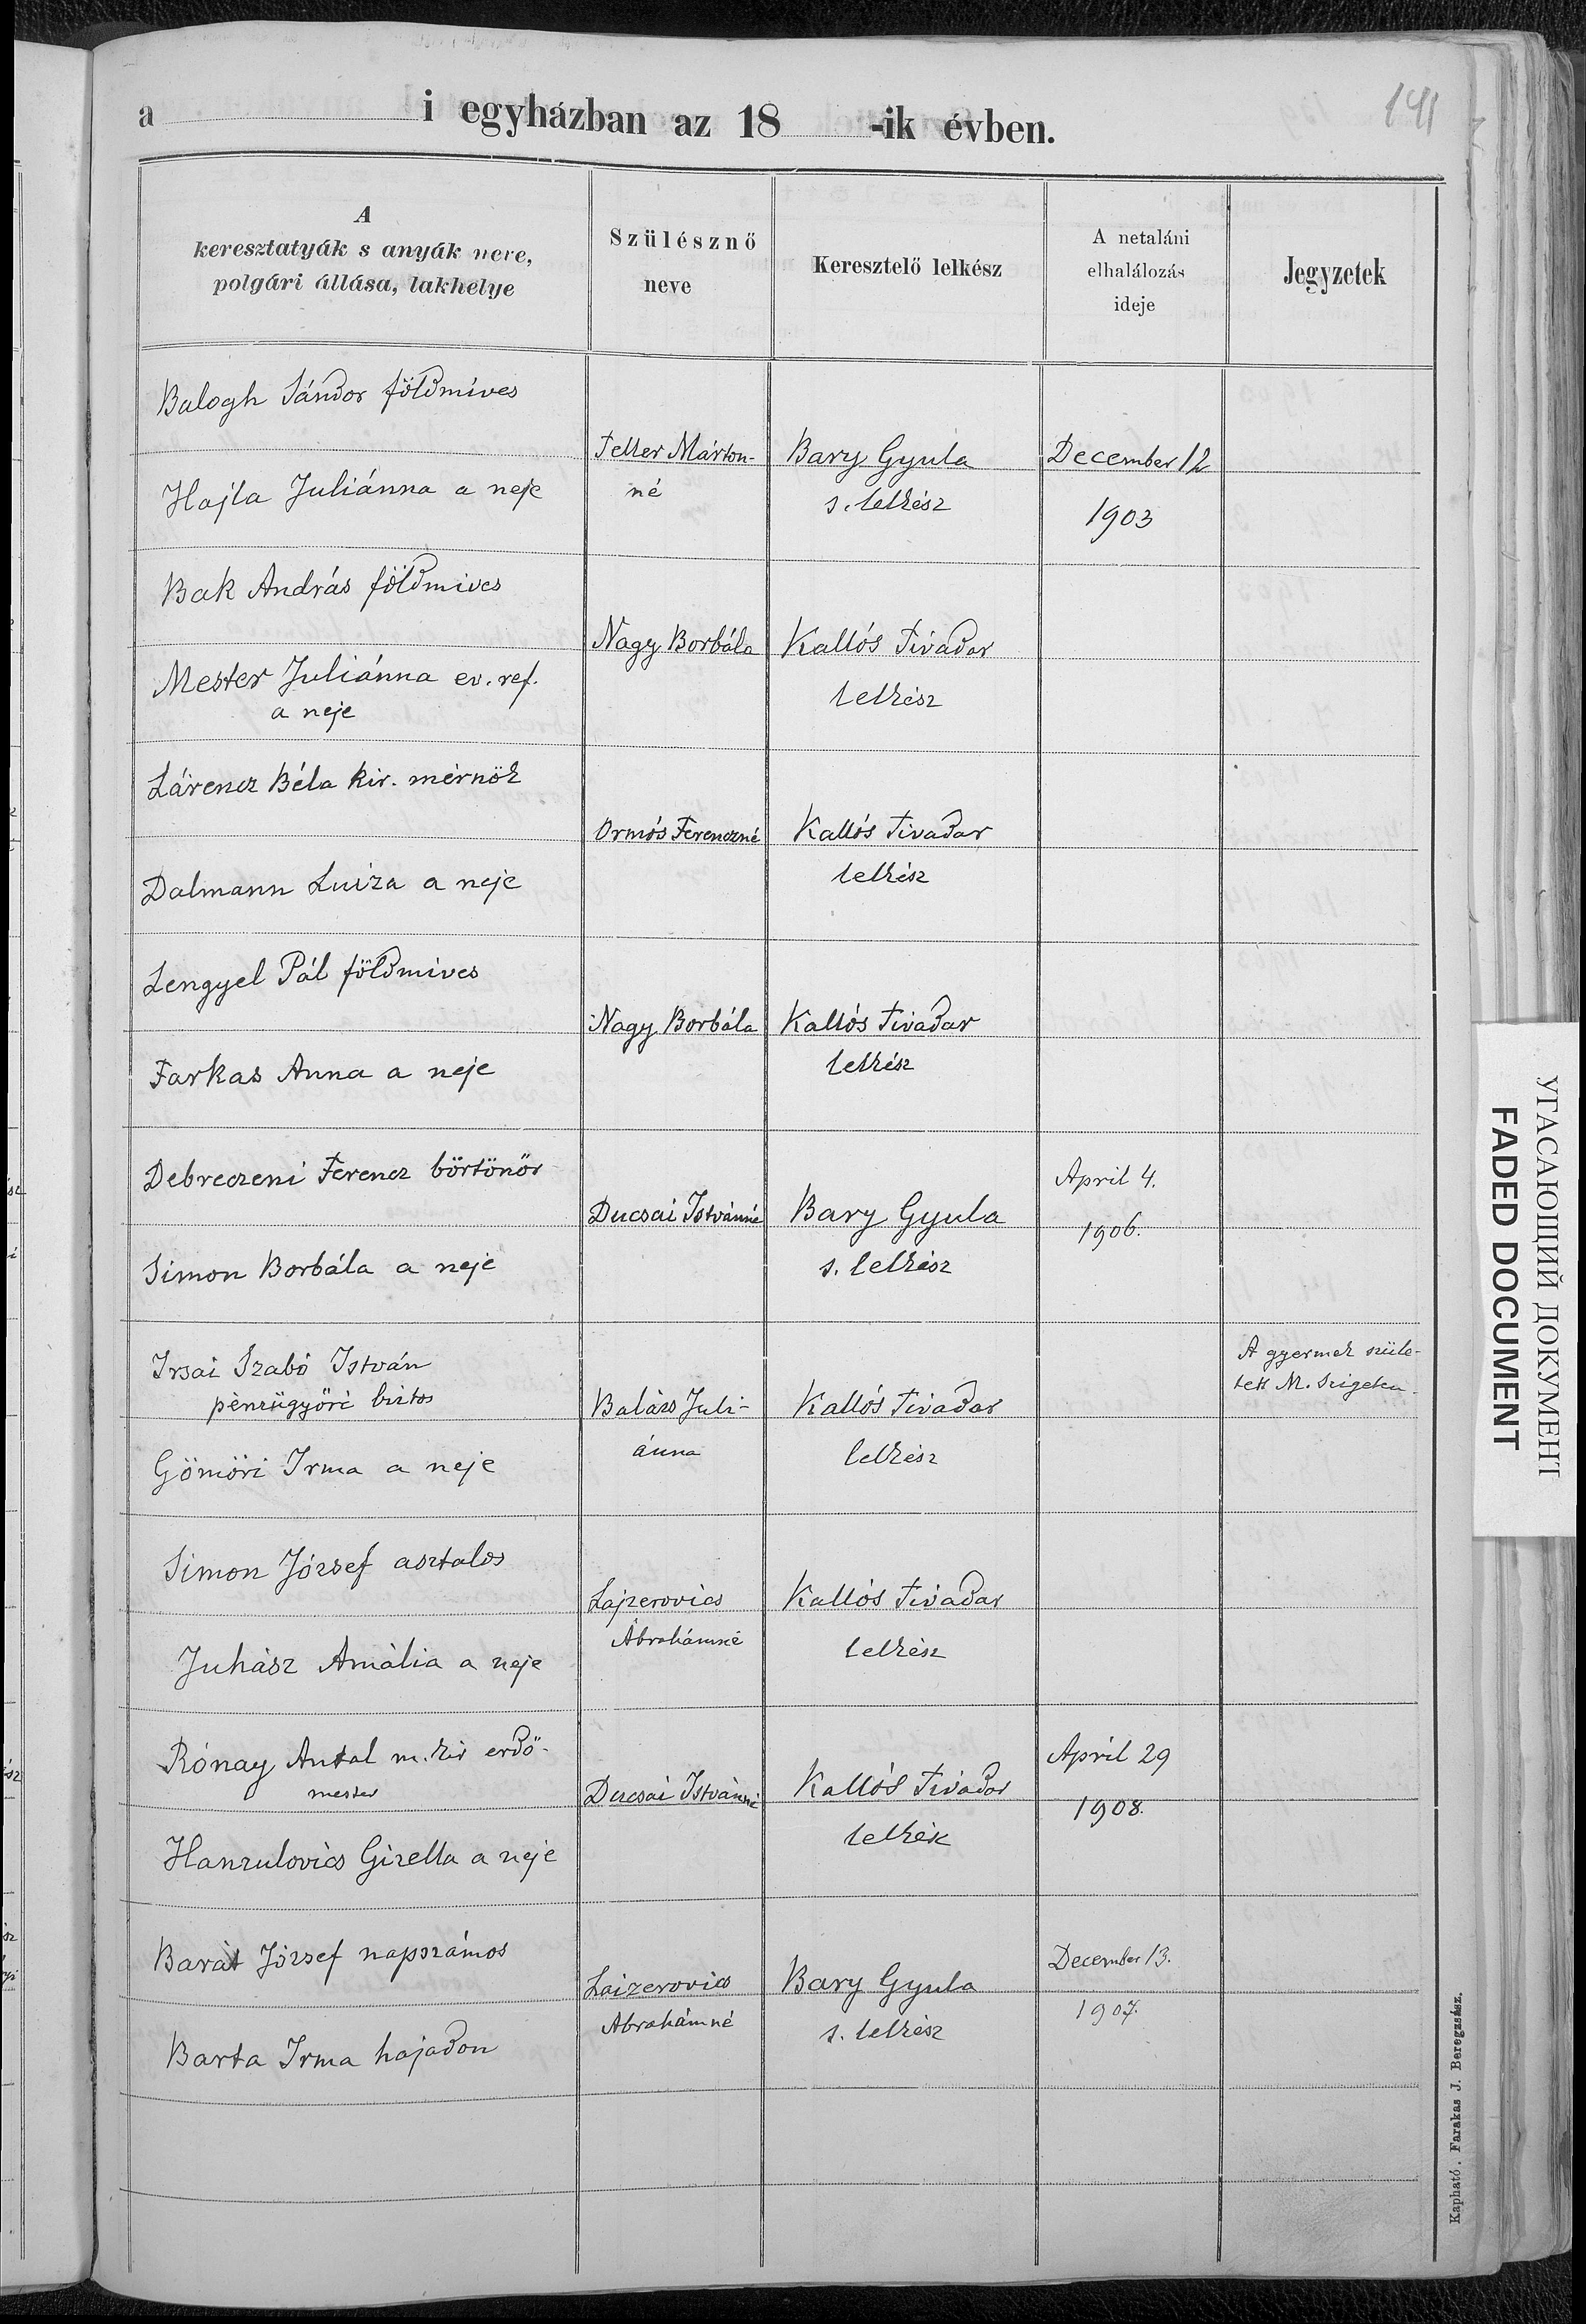 a i egyházban az 18 -ik évben.
141
A
keresztatyák s anyák neve,
polgári állása, lakhelye
Szülésznő
neve
Keresztelő lelkész
A netaláni
elhalálozás
ideje
Jegyzetek
Balogh Sándor földmíves
Hajla Juliánna a neje
Feller Márton-
né
Bary Gyula
s. lelkész
December 12
1903
Bak András földmives
Mester Juliánna ev. ref.
a neje
Nagy Borbála
Kallós Tivadar
lelkész
Lárencz Béla kir. mérnök
Dalmann Luiza a neje
Ormós Ferenczné
Kallós Tivadar
lelkész
Lengyel Pál földmives
Farkas Anna a neje
Nagy Borbála
Kallós Tivadar
lelkész
Debreczeni Ferencz börtönőr
Simon Borbála a neje
Ducsai Istvánné
Bary Gyula
s. lelkész
April 4.
1906.
Irsai Szabó István
pénzügyőri biztos
Gömöri Irma a neje
Balázs Juli-
ánna
Kallós Tivadar
lelkész
A gyermek szüle-
tett M. Szigeten.
Simon József asztalos
Juhász Amália a neje
Lajzerovics
Ábrahámné
Kallós Tivadar
lelkész
Rónay Antal m. kir erdő-
mester
Hanzulovics Gizella a neje
Ducsai Istvánné
Kallós Tivadar
lelkész
April 29
1908.
Barát József napszámos
Barta Irma hajadon
Laizerovics
Abrahámné
Bary Gyula
s. lelkész
December 13.
1907.
Kapható. Farakas J. Beregszász.
УГАСАЮЩИЙ ДОКУМЕНТ
FADED DOCUMENT